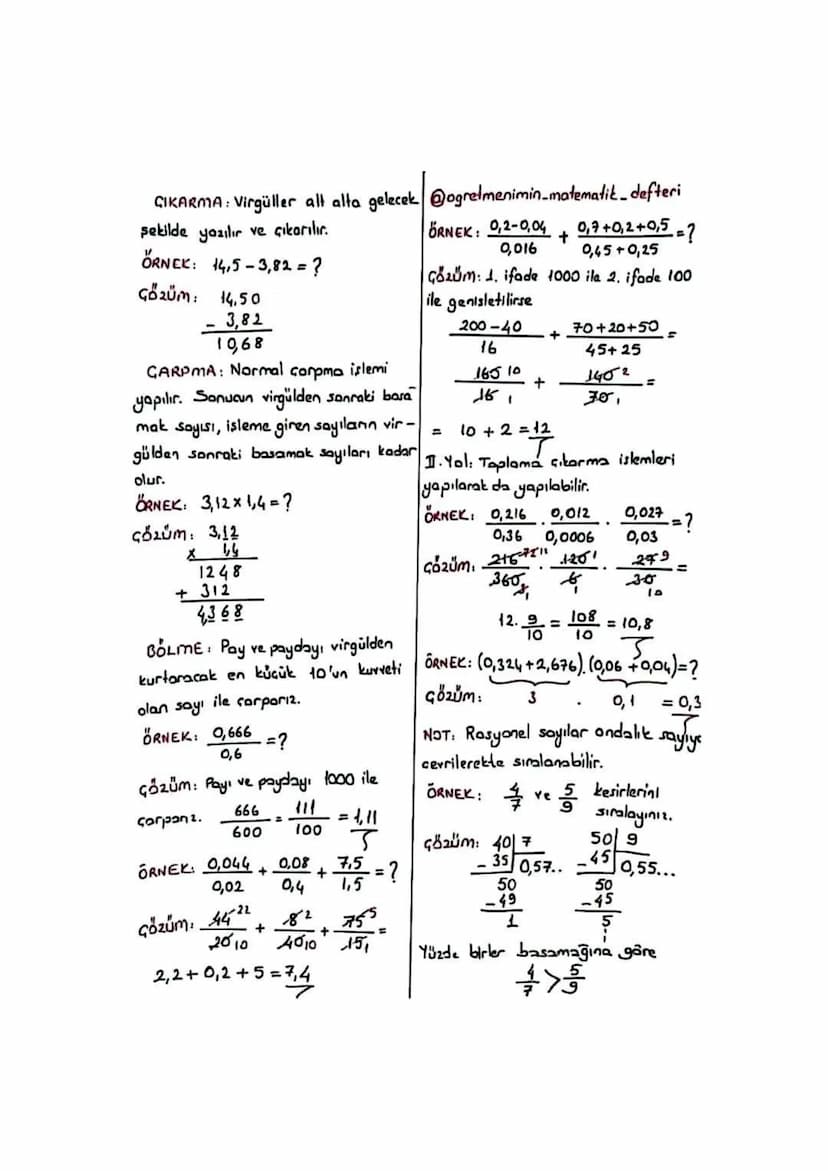 ÇIKARMA: Virgüller alt alta gelecek
şekilde yazılır ve çıkarılır.
ÖRNEK: 14,5 - 3,82 = ?
ÇÖZÜM: 14,50
- 3,82
10,68
ÇARPMA: Normal çarpma işlemi
yapılır. Sonucun virgülden sonraki basa-
mak sayısı, işleme giren sayıların vir-
gülden sonraki basamak sayıları kadar
olur.
ÖRNEK: 3,12 x 1,4 = ?
ÇÖZÜM: 3,12
x 1,4
1248
+ 312
4,368
BÖLME: Pay ve paydayı virgülden
kurtaracak en küçük 10'un kuvveti
olan sayı ile çarparız.
ÖRNEK: 0,666/0,6 = ?
ÇÖZÜM: Payı ve paydayı 1000 ile
çarparız. 666/600 = 111/100 = 1,11
ÖRNEK: 0,044/0,02 + 0,08/0,4 + 7,5/1,5 = ?
ÇÖZÜM: 44 22/20 10 + 8 2/40 10 + 75 5/15 1 =
2,2 + 0,2 + 5 = 7,4
@ogretmenimin_matematik_defteri
ÖRNEK: 0,2-0,04/0,016 + 0,7+0,2+0,5/0,45+0,25 = ?
ÇÖZÜM: 1. ifade 1000 ile 2. ifade 100
ile genişletilirse
200-40/16 + 70+20+50/45+25 =
160 10/16 1 + 140 2/70 1 =
= 10 + 2 = 12
II. Yol: Toplama çıkarma işlemleri
yapılarak da yapılabilir.
ÖRNEK: 0,216/0,36 . 0,012/0,0006 . 0,027/0,03 = ?
ÇÖZÜM: 216 /360 . 120 1/6 1 . 27 9/30 10 =
12. 9/10 = 108/10 = 10,8
ÖRNEK: (0,324+2,676).(0,06+0,04)=?
ÇÖZÜM: 3 . 0,1 = 0,3
NOT: Rasyonel sayılar ondalık sayıya
çevrilerekte sıralanabilir.
ÖRNEK: 4/7 ve 5/9 kesirlerini
sıralayınız.
ÇÖZÜM: 40 | 7 50 | 9
- 35 0,57.. - 45 0,55...
50 50
- 49 - 45
1 5
Yüzde birler basamağına göre
4/7 > 5/9